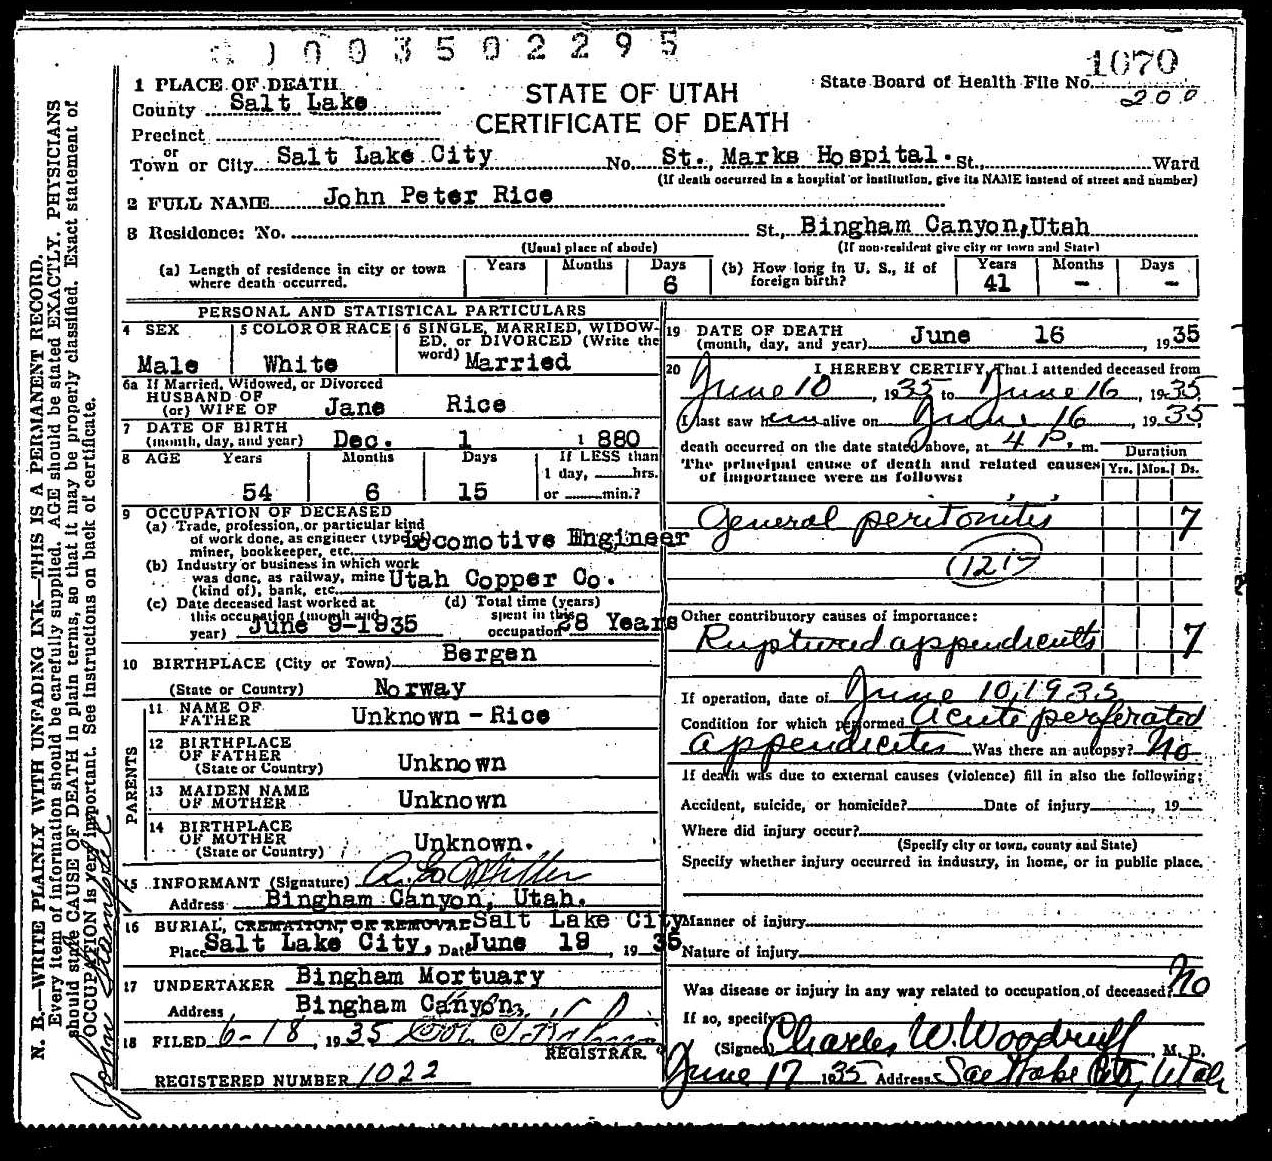 1003502295
1 PLACE OF DEATH
STATE OF UTAH
CERTIFICATE OF DEATH
State Board of Health File No. 1070
200
County Salt Lake
Precinct
or
Town or City Salt Lake City No. St. Marks Hospital. St., Ward
(If death occurred in a hospital or institution, give its NAME instead of street and number)
2 FULL NAME John Peter Rice
3 Residence: No. St., Bingham Canyon, Utah
(Usual place of abode) (If non-resident give city or town and State)
(a) Length of residence in city or town where death occurred. Years Months Days 6
(b) How long in U. S., if of foreign birth? Years 41 Months – Days –
PERSONAL AND STATISTICAL PARTICULARS
4 SEX Male
5 COLOR OR RACE White
6 SINGLE, MARRIED, WIDOWED, or DIVORCED (Write the word) Married
6a If Married, Widowed, or Divorced
HUSBAND OF
(or) WIFE OF Jane Rice
7 DATE OF BIRTH
(month, day, and year) Dec. 1 1880
8 AGE Years Months Days If LESS than
1 day, hrs.
54 6 15 or min.?
9 OCCUPATION OF DECEASED
(a) Trade, profession, or particular kind
of work done, as engineer (type of)
miner, bookkeeper, etc. Locomotive Engineer
(b) Industry or business in which work
was done, as railway, mine
(kind of), bank, etc. Utah Copper Co.
(c) Date deceased last worked at
this occupation (month and
year) June 9-1935
(d) Total time (years)
spent in this
occupation 28 Years
10 BIRTHPLACE (City or Town) Bergen
(State or Country) Norway
PARENTS
11 NAME OF
FATHER Unknown - Rice
12 BIRTHPLACE
OF FATHER
(State or Country) Unknown
13 MAIDEN NAME
OF MOTHER Unknown
14 BIRTHPLACE
OF MOTHER
(State or Country) Unknown.
15 INFORMANT (Signature)
Address Bingham Canyon, Utah.
16 BURIAL, CREMATION, OR REMOVAL Salt Lake City
Place Salt Lake City, Date June 19, 1935
17 UNDERTAKER Bingham Mortuary
Address Bingham Canyon,
18 FILED 6-18, 1935
REGISTRAR.
REGISTERED NUMBER 1022
19 DATE OF DEATH
(month, day, and year) June 16 1935
20 I HEREBY CERTIFY, That I attended deceased from
June 10, 1935 to June 16, 1935
I last saw him alive on June 16, 1935
death occurred on the date stated above, at 4 P. m.
The principal cause of death and related causes
of importance were as follows:
Duration
Yrs. Mos. Ds.
General peritonitis 7
Other contributory causes of importance:
Ruptured appendicitis 7
If operation, date of June 10, 1935
Condition for which performed Acute perforated
appendicitis Was there an autopsy? No
If death was due to external causes (violence) fill in also the following:
Accident, suicide, or homicide? Date of injury, 19
Where did injury occur?
(Specify city or town, county and State)
Specify whether injury occurred in industry, in home, or in public place.
Manner of injury
Nature of injury
Was disease or injury in any way related to occupation of deceased? No
If so, specify
(Signed) Charles W. Woodruff, M. D.
June 17 1935 Address Salt Lake City, Utah
N. B.—WRITE PLAINLY WITH UNFADING INK—THIS IS A PERMANENT RECORD.
Every item of information should be carefully supplied. AGE should be stated EXACTLY. PHYSICIANS
should state CAUSE OF DEATH in plain terms, so that it may be properly classified. Exact statement of
OCCUPATION is very important. See instructions on back of certificate.
John